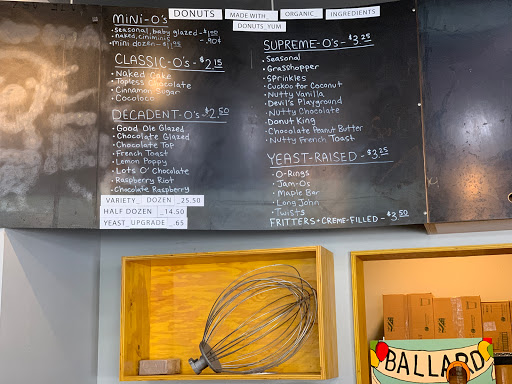 DONUTS MADE WITH ORGANIC INGREDIENTS
DONUTS YUM
MINI-O's
• seasonal, baby glazed - $1.00
• naked, ciniminis - .90¢
• mini dozen - $11.95
CLASSIC-O's - $2.15
• Naked Cake
• Topless Chocolate
• Cinnamon Sugar
• Cocoloco
DECADENT-O's - $2.50
• Good Ole Glazed
• Chocolate Glazed
• Chocolate Top
• French Toast
• Lemon Poppy
• Lots O' Chocolate
• Raspberry Riot
• Chocolate Raspberry
VARIETY DOZEN - 25.50
HALF DOZEN - 14.50
YEAST UPGRADE - .65
SUPREME-O's - $3.25
• Seasonal
• Grasshopper
• SPrinkles
• Cuckoo for Coconut
• Nutty Vanilla
• Devil's Playground
• Nutty Chocolate
• Donut King
• Chocolate Peanut Butter
• Nutty French Toast
YEAST-RAISED - $3.25
• O-Rings
• Jam-Os
• Maple Bar
• Long John
• Twists
FRITTERS + CREME-FILLED - $3.50
BALLARD